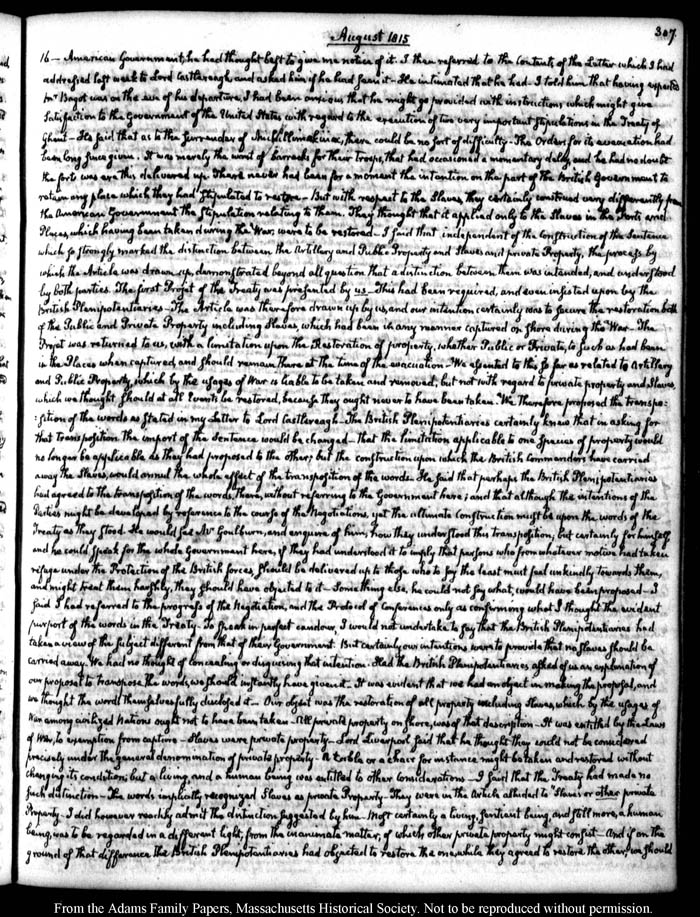 August 1815
307.
16 — American Government, he had thought best to give me notice of it. I then referred to the Contents of the Letter which I had
addressed last week to Lord Castlereagh and asked him if he had seen it — He intimated that he had — I told him that having expected
Mr Bagot was on the eve of his departure, I had been anxious that he might go provided with instructions which might give
satisfaction to the Government of the United States with regard to the execution of two very important stipulations in the Treaty of
Ghent — He said that as to the surrender of Michillimakinac, there could be no sort of difficulty — The Orders for its evacuation had
been long since given. It was merely the want of barracks for their troops, that had occasioned a momentary delay, and he had no doubt
the fort was ere this delivered up. There never had been for a moment the intention on the part of the British Government to
retain any place which they had stipulated to restore — But with respect to the Slaves, they certainly construed very differently from
the American Government the stipulation relating to them. They thought that it applied only to the Slaves in the Forts and
Places, which having been taken during the War, were to be restored — I said that independent of the Construction of the Sentence
which so strongly marked the distinction between the Artillery and Public Property and Slaves and private Property, the process by
which the Article was drawn up, demonstrated beyond all question that a distinction between them was intended, and understood
by both parties. The first Projet of the Treaty was presented by us — This had been required, and even insisted upon by the
British Plenipotentiaries — The Article was therefore drawn up by us, and our intention certainly was to secure the restoration both
of the Public and Private Property including Slaves, which had been in any manner captured on shore during the War — The
Projet was returned to us, with a limitation upon the Restoration of property, whether Public or Private, to such as had been
in the Places when captured, and should remain there at the time of the evacuation — We assented to this so far as related to Artillery
and Public Property, which by the usages of War is liable to be taken and removed; but not with regard to private property and Slaves,
which we thought should at all Events be restored, because they ought never to have been taken. We therefore proposed the transpo:
:sition of the words as stated in my Letter to Lord Castlereagh — The British Plenipotentiaries certainly knew that in asking for
that transposition the import of the Sentence would be changed — that the limitation applicable to one species of property would
no longer be applicable as they had proposed to the other; but the construction upon which the British Commanders have carried
away the Slaves, would annul the whole effect of the transposition of the words. He said that perhaps the British Plenipotentiaries
had agreed to the transposition of the words, there, without referring to the Government here; and that although the intentions of the
Parties might be developed by reference to the course of the Negotiations, yet the ultimate Construction must be upon the words of the
Treaty as they stood. He would see Mr Goulburn, and enquire of him, how they understood this transposition, but certainly for himself
and he could speak for the whole Government here, if they had understood it to imply that persons who from whatever motive had taken
refuge under the Protection of the British forces, should be delivered up to those who to say the least must feel unkindly towards them,
and might treat them harshly, they should have objected to it — Something else, he could not say what, would have been proposed — I
said I had referred to the progress of the Negotiation, and the Protocol of Conferences only as confirming what I thought the evident
purport of the words in the Treaty. To speak in perfect candour, I would not undertake to say that the British Plenipotentiaries had
taken a view of the subject different from that of their Government. But certainly our intentions were to provide that no Slaves should be
carried away. We had no thought of concealing or disguising that intention. Had the British Plenipotentiaries asked of us an explanation of
our proposal to transpose the words, we should instantly have given it — It was evident that we had an object in making the proposal, and
we thought the words themselves fully disclosed it — Our object was the restoration of all property including Slaves, which by the usages of
War among civilized Nations ought not to have been taken — All private property on shore, was of that description — It was entitled by the Laws
of War, to exemption from capture — Slaves were private property — Lord Liverpool said that he thought they could not be considered
precisely under the general denomination of private property — A table or a chair for instance might be taken and restored without
changing its condition; but a living and a human being was entitled to other considerations — I said that the Treaty had made no
such distinction — The words implicitly recognized Slaves as private Property — They were in the Article alluded to "Slaves or other private
Property — I did however readily admit the distinction suggested by him — Most certainly a living, sentient being, and still more, a human
being, was to be regarded in a different light, from the inanimate matter, of which other private property might consist — And if on the
ground of that difference the British Plenipotentiaries had objected to restore the one while they agreed to restore the other, we should
From the Adams Family Papers, Massachusetts Historical Society. Not to be reproduced without permission.